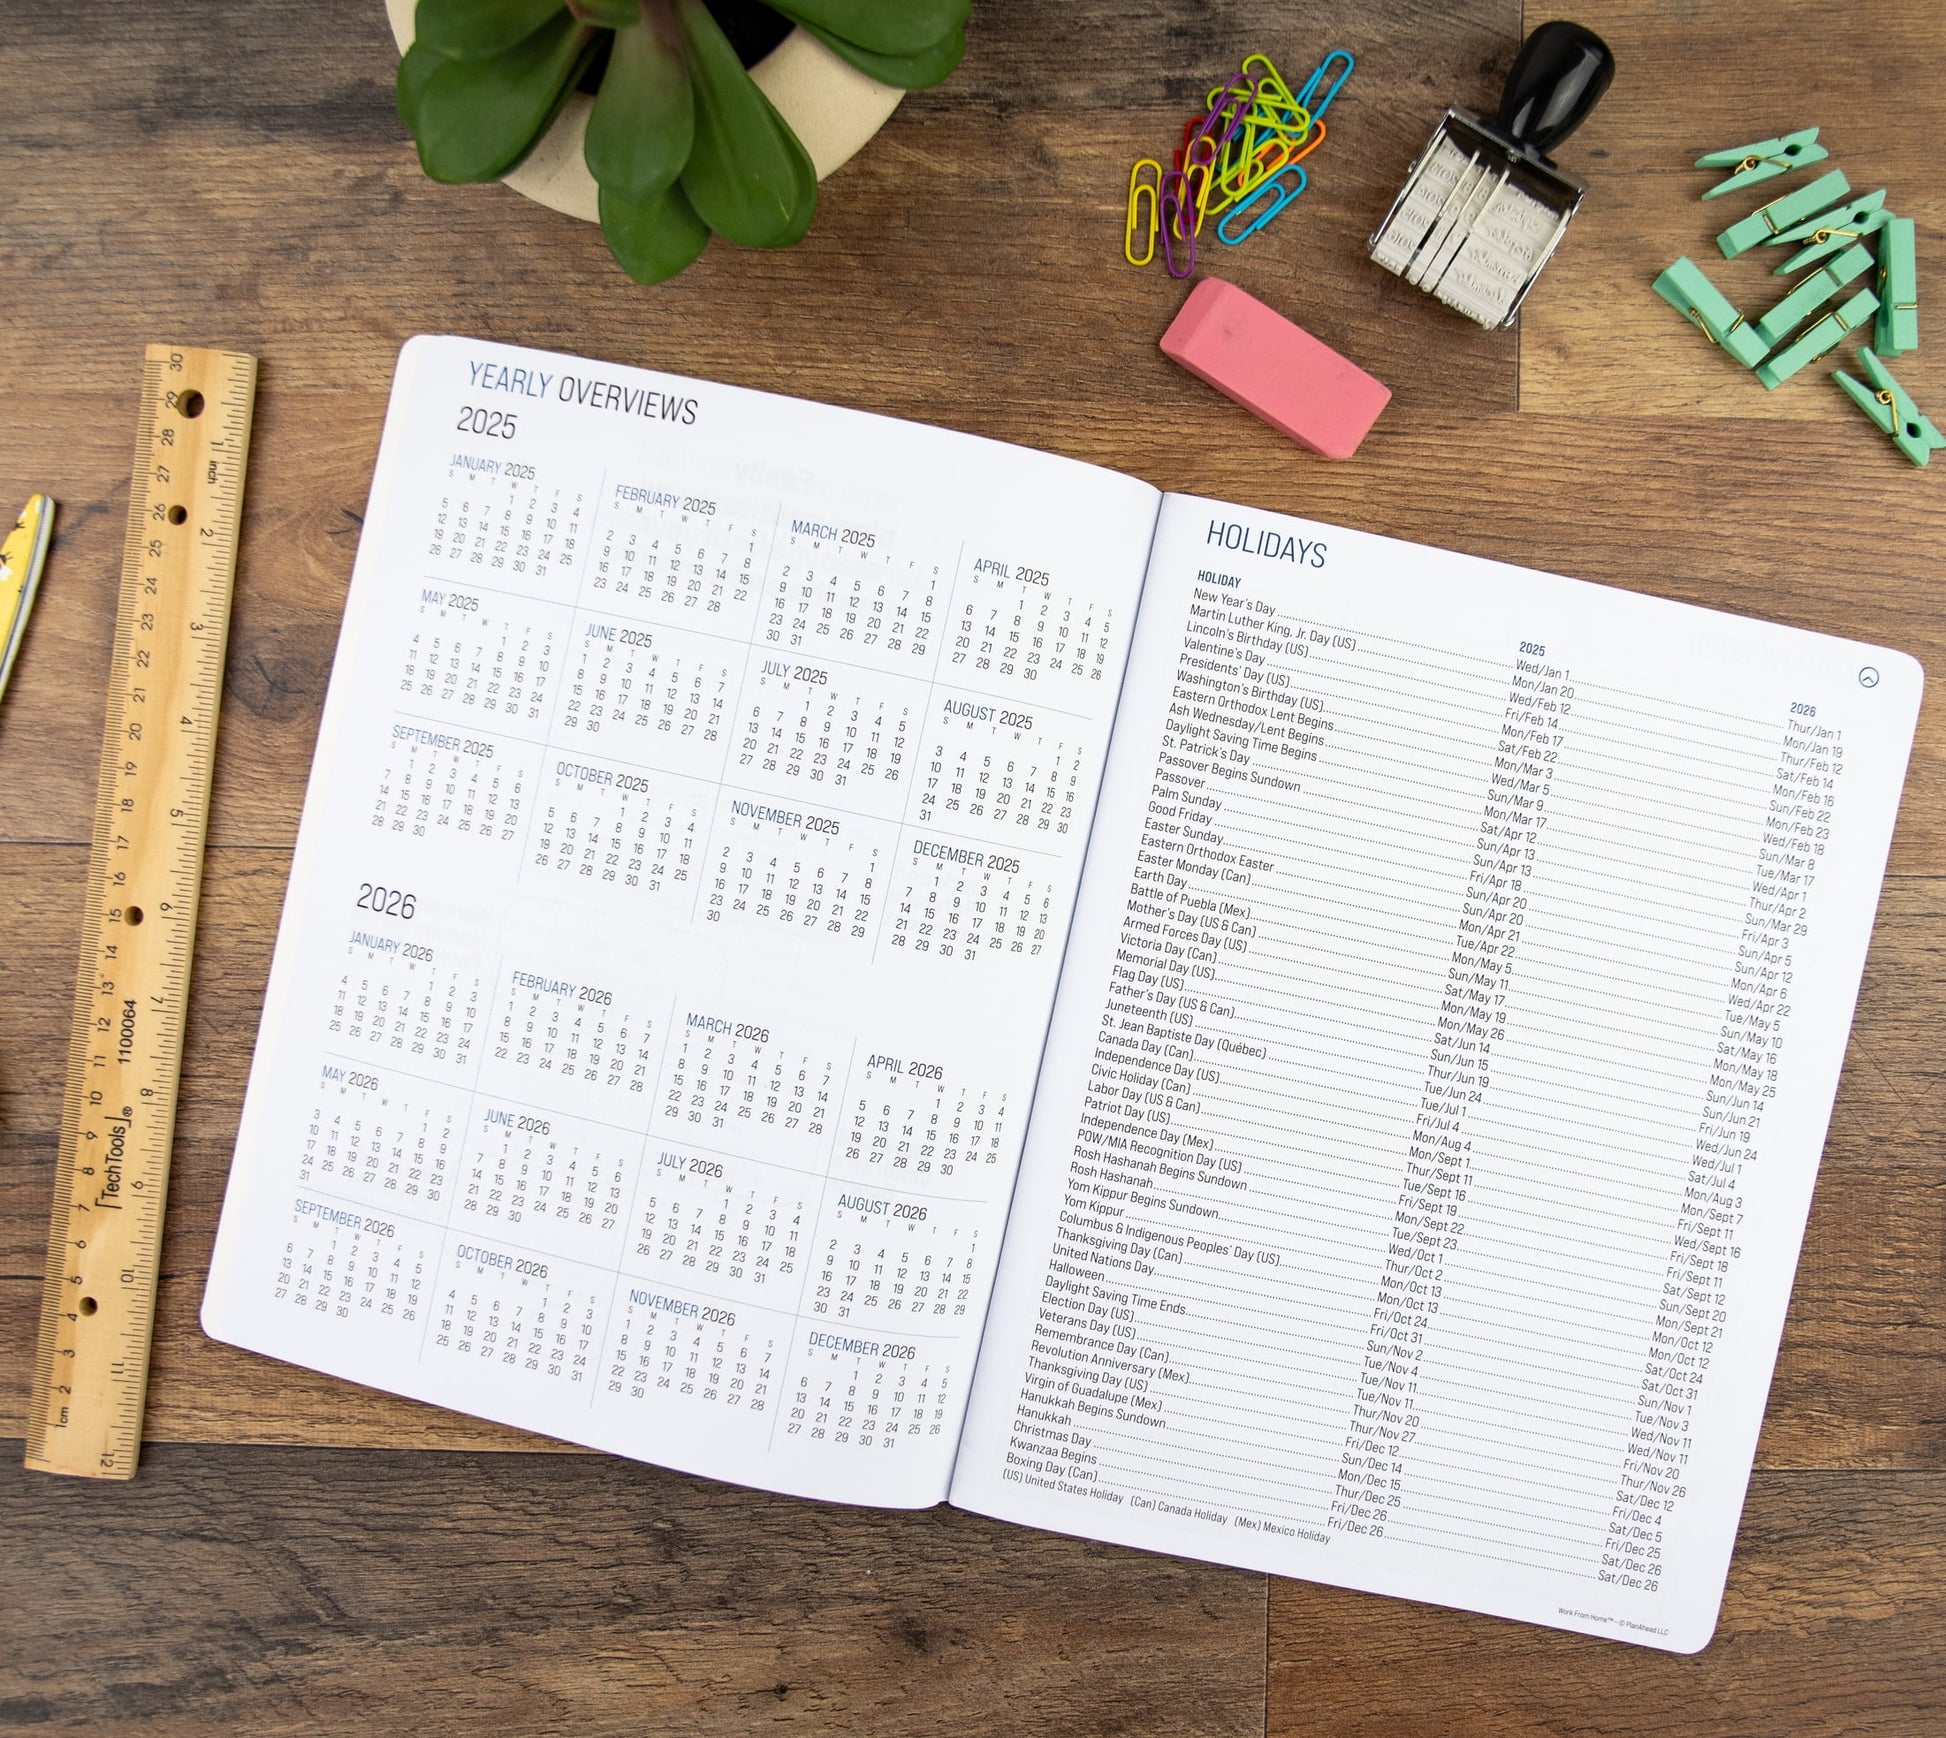 TechTools® 1100064
1cm 2 3 4 5 6 7 8 9 10 11 12 13 14 15 16 17 18 19 20 21 22 23 24 25 26 27 28 29 30
1 inch 2 3 4 5 6 7 8 9 10 11 12
YEARLY OVERVIEWS
2025
JANUARY 2025
S M T W T F S
1 2 3 4
5 6 7 8 9 10 11
12 13 14 15 16 17 18
19 20 21 22 23 24 25
26 27 28 29 30 31
FEBRUARY 2025
S M T W T F S
1
2 3 4 5 6 7 8
9 10 11 12 13 14 15
16 17 18 19 20 21 22
23 24 25 26 27 28
MARCH 2025
S M T W T F S
1
2 3 4 5 6 7 8
9 10 11 12 13 14 15
16 17 18 19 20 21 22
23 24 25 26 27 28 29
30 31
APRIL 2025
S M T W T F S
1 2 3 4 5
6 7 8 9 10 11 12
13 14 15 16 17 18 19
20 21 22 23 24 25 26
27 28 29 30
MAY 2025
S M T W T F S
1 2 3
4 5 6 7 8 9 10
11 12 13 14 15 16 17
18 19 20 21 22 23 24
25 26 27 28 29 30 31
JUNE 2025
S M T W T F S
1 2 3 4 5 6 7
8 9 10 11 12 13 14
15 16 17 18 19 20 21
22 23 24 25 26 27 28
29 30
JULY 2025
S M T W T F S
1 2 3 4 5
6 7 8 9 10 11 12
13 14 15 16 17 18 19
20 21 22 23 24 25 26
27 28 29 30 31
AUGUST 2025
S M T W T F S
1 2
3 4 5 6 7 8 9
10 11 12 13 14 15 16
17 18 19 20 21 22 23
24 25 26 27 28 29 30
31
SEPTEMBER 2025
S M T W T F S
1 2 3 4 5 6
7 8 9 10 11 12 13
14 15 16 17 18 19 20
21 22 23 24 25 26 27
28 29 30
OCTOBER 2025
S M T W T F S
1 2 3 4
5 6 7 8 9 10 11
12 13 14 15 16 17 18
19 20 21 22 23 24 25
26 27 28 29 30 31
NOVEMBER 2025
S M T W T F S
1
2 3 4 5 6 7 8
9 10 11 12 13 14 15
16 17 18 19 20 21 22
23 24 25 26 27 28 29
30
DECEMBER 2025
S M T W T F S
1 2 3 4 5 6
7 8 9 10 11 12 13
14 15 16 17 18 19 20
21 22 23 24 25 26 27
28 29 30 31
2026
JANUARY 2026
S M T W T F S
1 2 3
4 5 6 7 8 9 10
11 12 13 14 15 16 17
18 19 20 21 22 23 24
25 26 27 28 29 30 31
FEBRUARY 2026
S M T W T F S
1 2 3 4 5 6 7
8 9 10 11 12 13 14
15 16 17 18 19 20 21
22 23 24 25 26 27 28
MARCH 2026
S M T W T F S
1 2 3 4 5 6 7
8 9 10 11 12 13 14
15 16 17 18 19 20 21
22 23 24 25 26 27 28
29 30 31
APRIL 2026
S M T W T F S
1 2 3 4
5 6 7 8 9 10 11
12 13 14 15 16 17 18
19 20 21 22 23 24 25
26 27 28 29 30
MAY 2026
S M T W T F S
1 2
3 4 5 6 7 8 9
10 11 12 13 14 15 16
17 18 19 20 21 22 23
24 25 26 27 28 29 30
31
JUNE 2026
S M T W T F S
1 2 3 4 5 6
7 8 9 10 11 12 13
14 15 16 17 18 19 20
21 22 23 24 25 26 27
28 29 30
JULY 2026
S M T W T F S
1 2 3 4
5 6 7 8 9 10 11
12 13 14 15 16 17 18
19 20 21 22 23 24 25
26 27 28 29 30 31
AUGUST 2026
S M T W T F S
1
2 3 4 5 6 7 8
9 10 11 12 13 14 15
16 17 18 19 20 21 22
23 24 25 26 27 28 29
30 31
SEPTEMBER 2026
S M T W T F S
1 2 3 4 5
6 7 8 9 10 11 12
13 14 15 16 17 18 19
20 21 22 23 24 25 26
27 28 29 30
OCTOBER 2026
S M T W T F S
1 2 3
4 5 6 7 8 9 10
11 12 13 14 15 16 17
18 19 20 21 22 23 24
25 26 27 28 29 30 31
NOVEMBER 2026
S M T W T F S
1 2 3 4 5 6 7
8 9 10 11 12 13 14
15 16 17 18 19 20 21
22 23 24 25 26 27 28
29 30
DECEMBER 2026
S M T W T F S
1 2 3 4 5
6 7 8 9 10 11 12
13 14 15 16 17 18 19
20 21 22 23 24 25 26
27 28 29 30 31
HOLIDAYS
HOLIDAY 2025 2026
New Year's Day Wed/Jan 1 Thur/Jan 1
Martin Luther King, Jr. Day (US) Mon/Jan 20 Mon/Jan 19
Lincoln's Birthday (US) Wed/Feb 12 Thur/Feb 12
Valentine's Day Fri/Feb 14 Sat/Feb 14
Presidents' Day (US) Mon/Feb 17 Mon/Feb 16
Washington's Birthday (US) Sat/Feb 22 Sun/Feb 22
Eastern Orthodox Lent Begins Mon/Mar 3 Mon/Feb 23
Ash Wednesday/Lent Begins Wed/Mar 5 Wed/Feb 18
Daylight Saving Time Begins Sun/Mar 9 Sun/Mar 8
St. Patrick's Day Mon/Mar 17 Tue/Mar 17
Passover Begins Sundown Sat/Apr 12 Wed/Apr 1
Passover Sun/Apr 13 Thur/Apr 2
Palm Sunday Sun/Apr 13 Sun/Mar 29
Good Friday Fri/Apr 18 Fri/Apr 3
Easter Sunday Sun/Apr 20 Sun/Apr 5
Eastern Orthodox Easter Sun/Apr 20 Sun/Apr 12
Easter Monday (Can) Mon/Apr 21 Mon/Apr 6
Earth Day Tue/Apr 22 Wed/Apr 22
Battle of Puebla (Mex) Mon/May 5 Tue/May 5
Mother's Day (US & Can) Sun/May 11 Sun/May 10
Armed Forces Day (US) Sat/May 17 Sat/May 16
Victoria Day (Can) Mon/May 19 Mon/May 18
Memorial Day (US) Mon/May 26 Mon/May 25
Flag Day (US) Sat/Jun 14 Sun/Jun 14
Father's Day (US & Can) Sun/Jun 15 Sun/Jun 21
Juneteenth (US) Thur/Jun 19 Fri/Jun 19
St. Jean Baptiste Day (Québec) Tue/Jun 24 Wed/Jun 24
Canada Day (Can) Tue/Jul 1 Wed/Jul 1
Independence Day (US) Fri/Jul 4 Sat/Jul 4
Civic Holiday (Can) Mon/Aug 4 Mon/Aug 3
Labor Day (US & Can) Mon/Sept 1 Mon/Sept 7
Patriot Day (US) Thur/Sept 11 Fri/Sept 11
Independence Day (Mex) Tue/Sept 16 Wed/Sept 16
POW/MIA Recognition Day (US) Fri/Sept 19 Fri/Sept 18
Rosh Hashanah Begins Sundown Mon/Sept 22 Fri/Sept 11
Rosh Hashanah Tue/Sept 23 Sat/Sept 12
Yom Kippur Begins Sundown Wed/Oct 1 Sun/Sept 20
Yom Kippur Thur/Oct 2 Mon/Sept 21
Columbus & Indigenous Peoples' Day (US) Mon/Oct 13 Mon/Oct 12
Thanksgiving Day (Can) Mon/Oct 13 Mon/Oct 12
United Nations Day Fri/Oct 24 Sat/Oct 24
Halloween Fri/Oct 31 Sat/Oct 31
Daylight Saving Time Ends Sun/Nov 2 Sun/Nov 1
Election Day (US) Tue/Nov 4 Tue/Nov 3
Veterans Day (US) Tue/Nov 11 Wed/Nov 11
Remembrance Day (Can) Tue/Nov 11 Wed/Nov 11
Revolution Anniversary (Mex) Thur/Nov 20 Fri/Nov 20
Thanksgiving Day (US) Thur/Nov 27 Thur/Nov 26
Virgin of Guadalupe (Mex) Fri/Dec 12 Sat/Dec 12
Hanukkah Begins Sundown Sun/Dec 14 Fri/Dec 4
Hanukkah Mon/Dec 15 Sat/Dec 5
Christmas Day Thur/Dec 25 Fri/Dec 25
Kwanzaa Begins Fri/Dec 26 Sat/Dec 26
Boxing Day (Can) Fri/Dec 26 Sat/Dec 26
(US) United States Holiday (Can) Canada Holiday (Mex) Mexico Holiday
Work From Home™ - © PlanAhead LLC